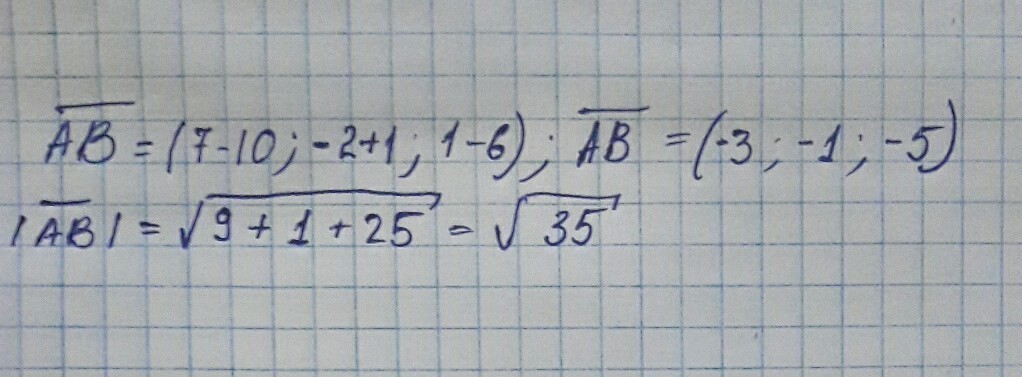 AB = (7-10; -2+1; 1-6); AB = (-3; -1; -5)
|AB| = √9 + 1 + 25 = √35